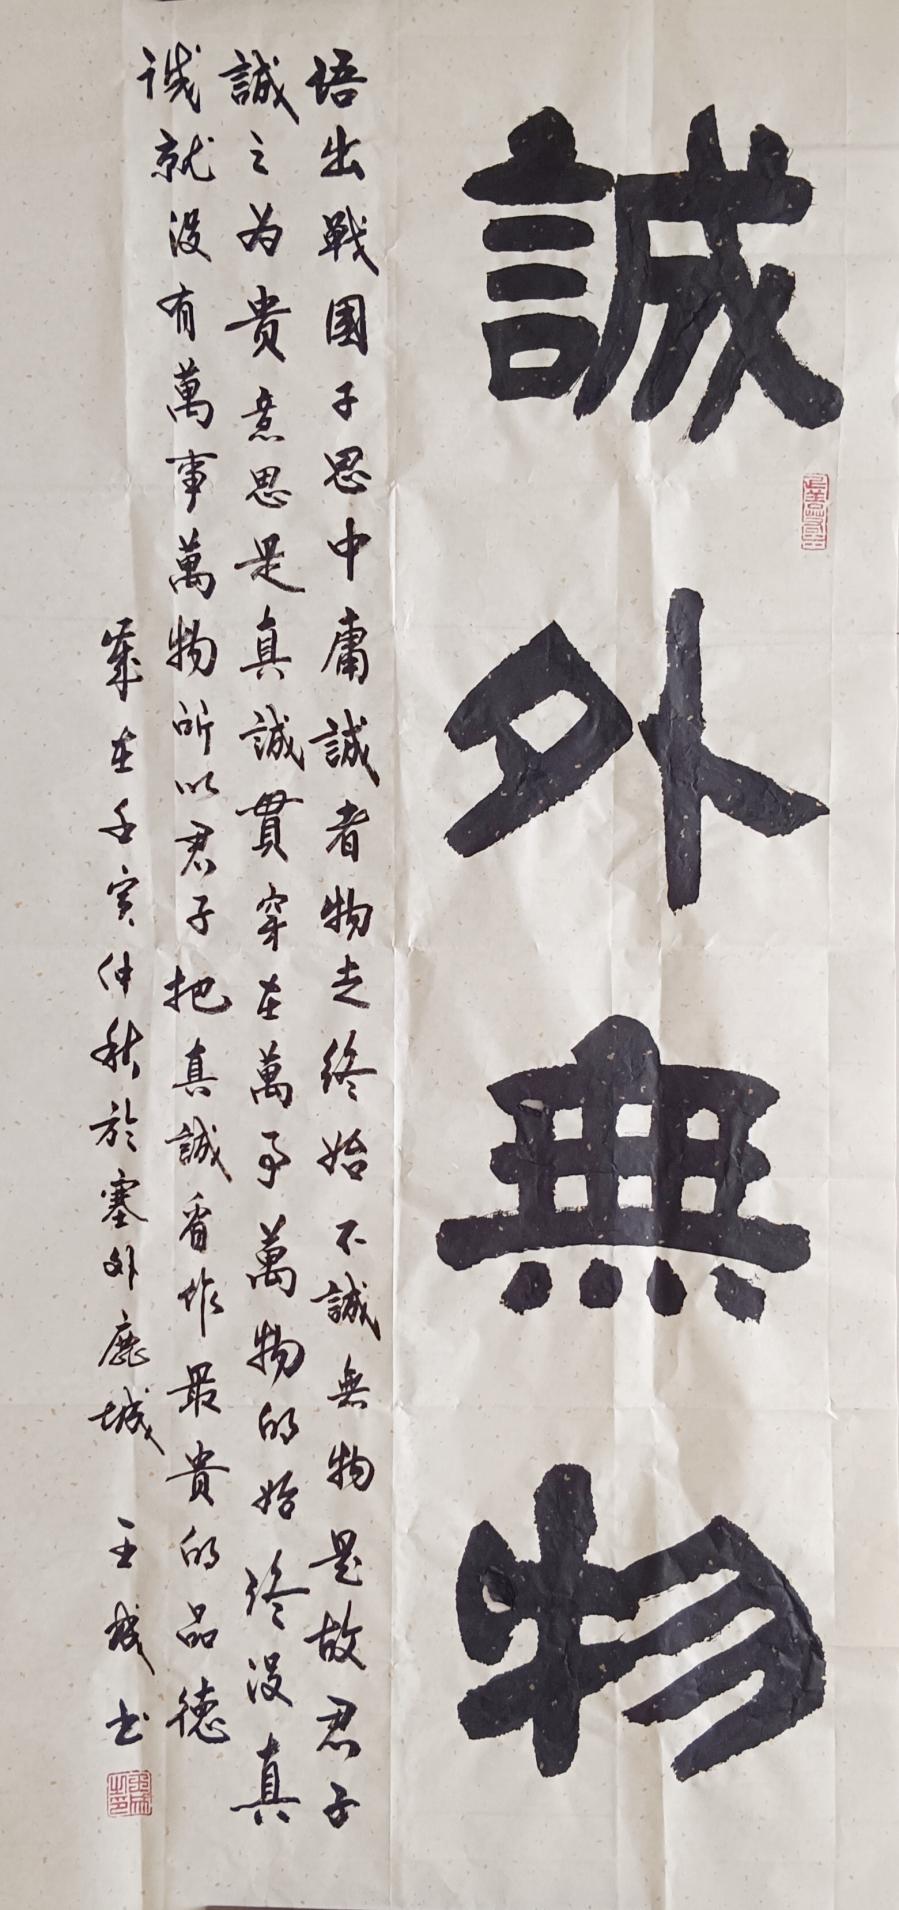 誠外無物
语出戰國子思中庸誠者物之终始不誠無物是故君子
誠之为貴意思是真誠貫穿在萬事萬物的始终没真
诚就没有萬事萬物所以君子把真誠看作最貴的品德
歲在壬寅仲秋於塞外鹿城 王成书